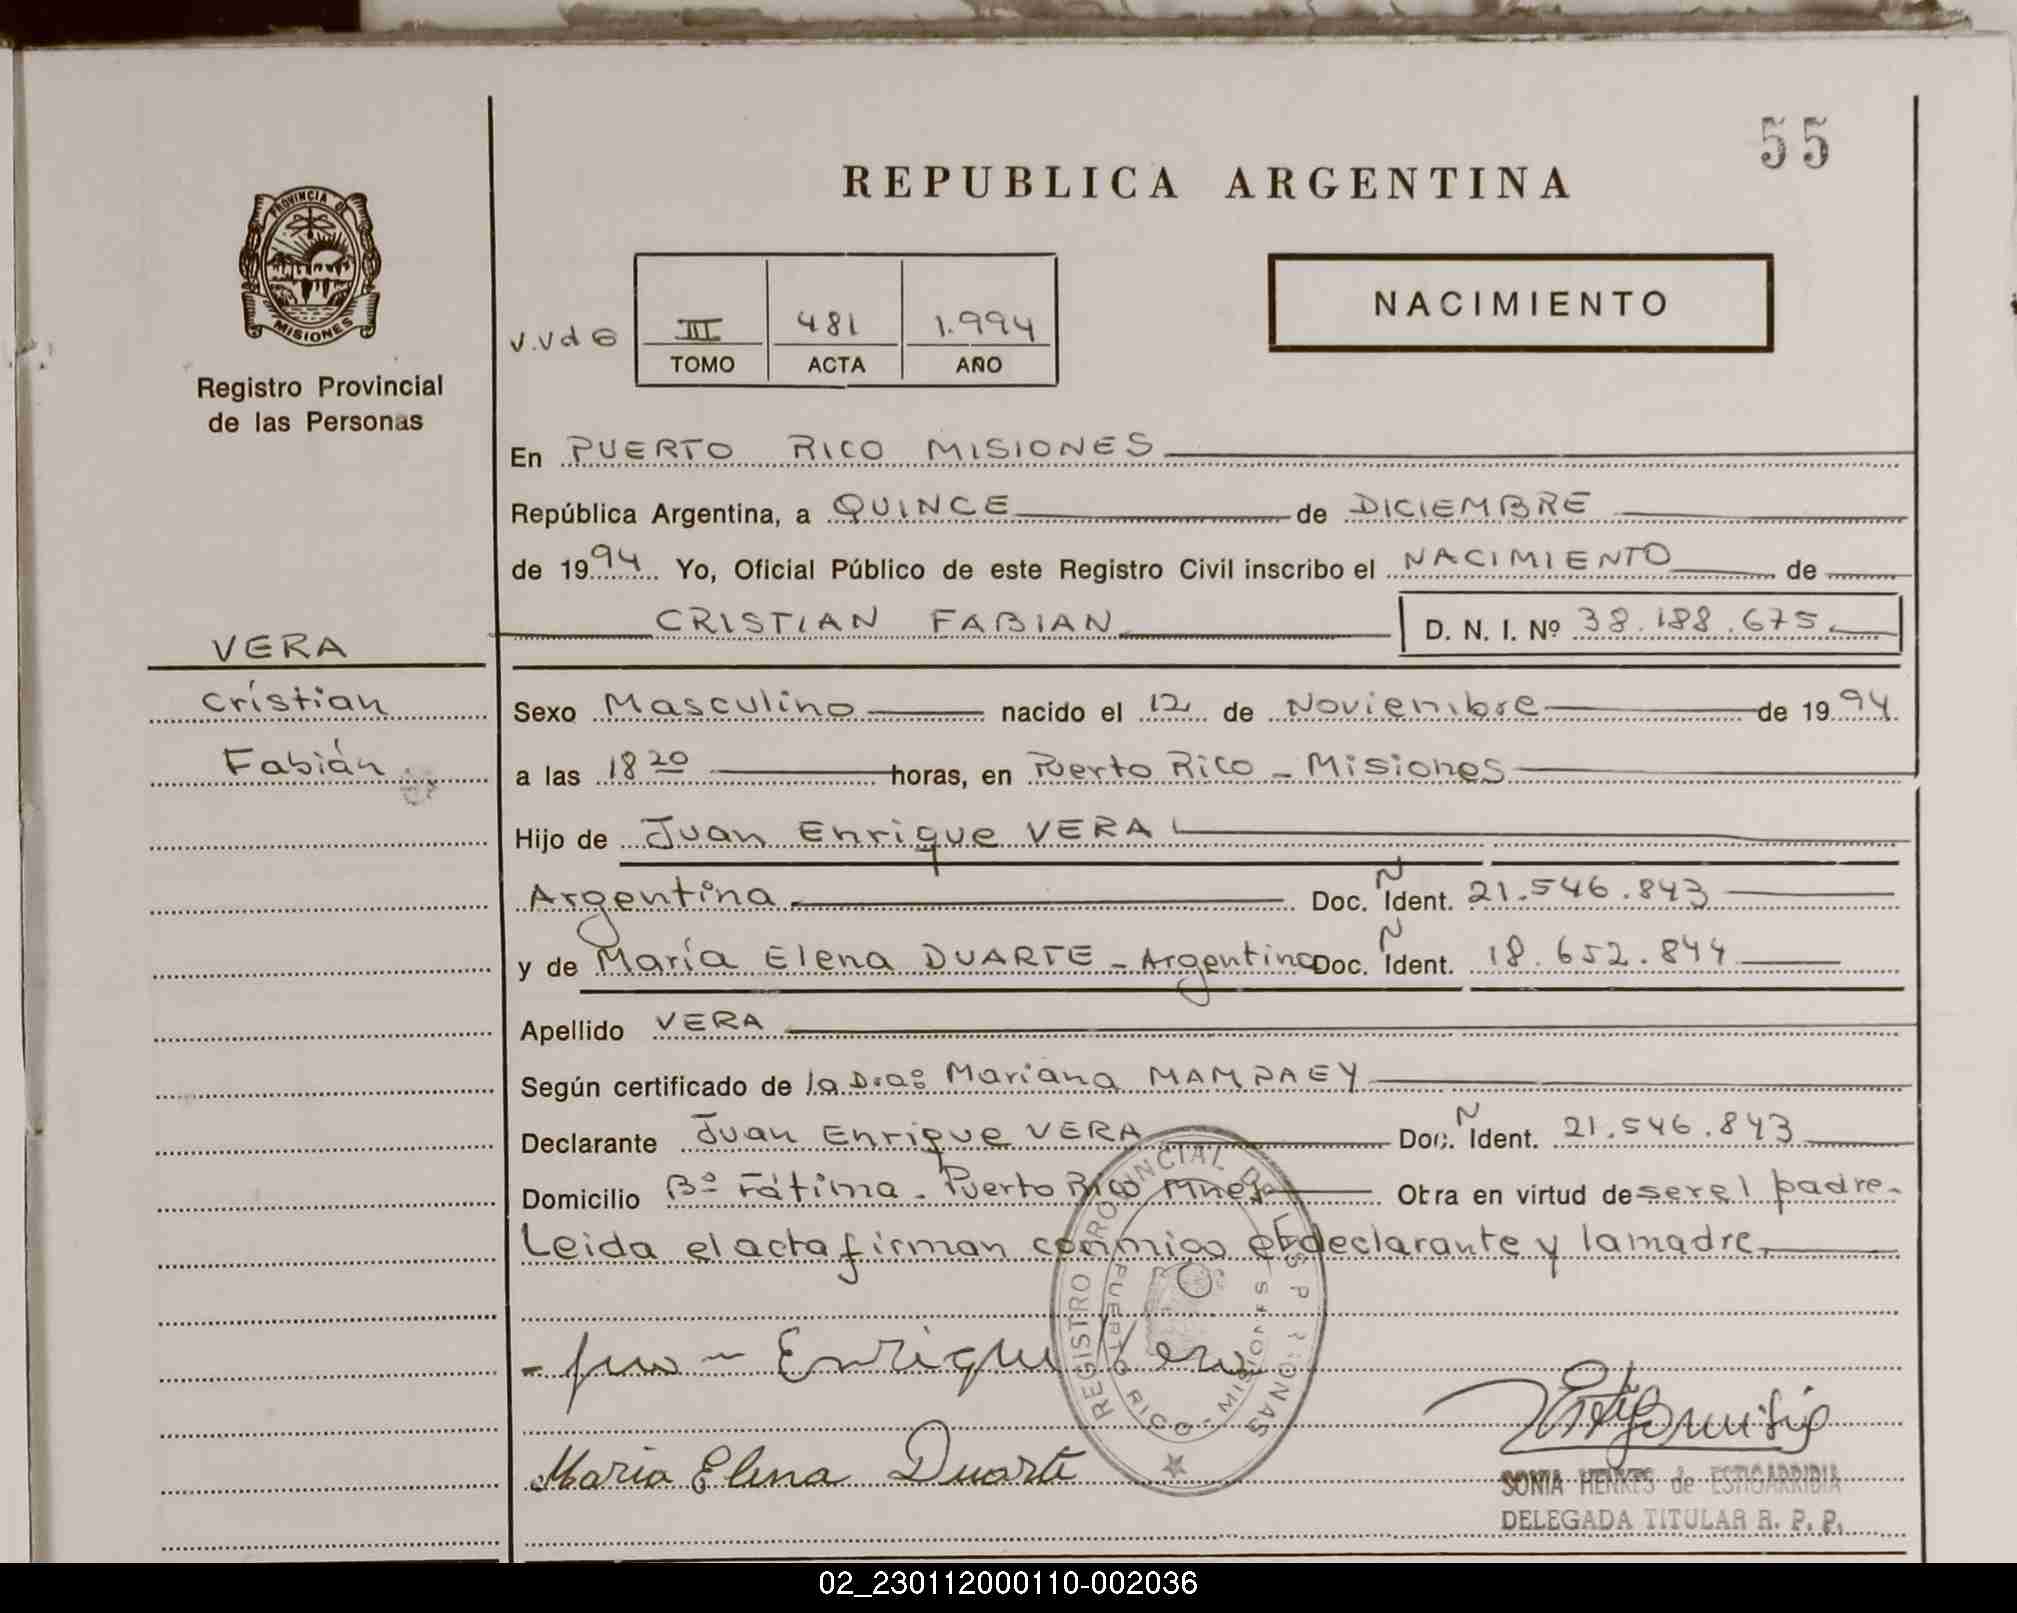 55
REPUBLICA ARGENTINA
PROVINCIA DE
MISIONES
Registro Provincial
de las Personas
NACIMIENTO
v.vd6
III 481 1.994
TOMO ACTA AÑO
En PUERTO RICO MISIONES
República Argentina, a QUINCE de DICIEMBRE
de 1994 Yo, Oficial Público de este Registro Civil inscribo el NACIMIENTO de
CRISTIAN FABIAN D. N. I. Nº 38.188.675
VERA
Cristian
Fabián
Sexo Masculino nacido el 12 de Noviembre de 1994
a las 18 20 horas, en Puerto Rico - Misiones
Hijo de Juan Enrique VERA
Argentina Doc. Ñ Ident. 21.546.843
y de María Elena DUARTE - Argentina Doc. Ñ Ident. 18.652.844
Apellido VERA
Según certificado de la Dra: Mariana MAMPAEY
Declarante Juan Enrique VERA Doc. Ñ Ident. 21.546.843
Domicilio Bº Fátima - Puerto Rico Mnes Obra en virtud de ser el padre.
Leida el acta firman conmigo el declarante y la madre
REGISTRO PROVINCIAL DE LAS PERSONAS
PUERTO RICO - MISIONES
Enrique Vera
Maria Elena Duarte
SONIA HENKES de ESTIGARRIBIA
DELEGADA TITULAR R. P. P.
02_230112000110-002036